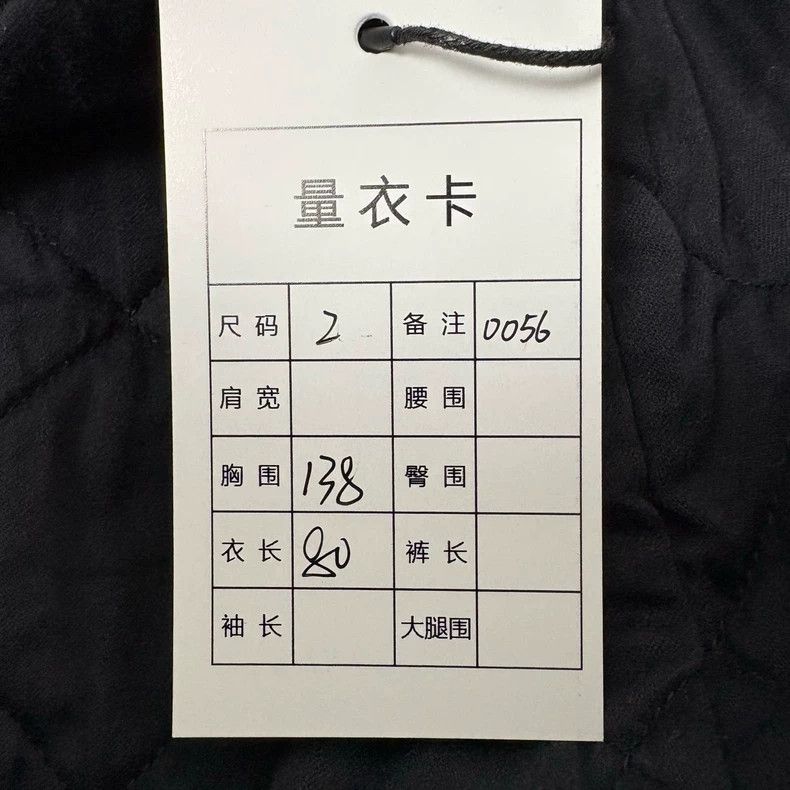 量衣卡
尺码 2 备注 0056
肩宽 腰围
胸围 138 臀围
衣长 80 裤长
袖长 大腿围